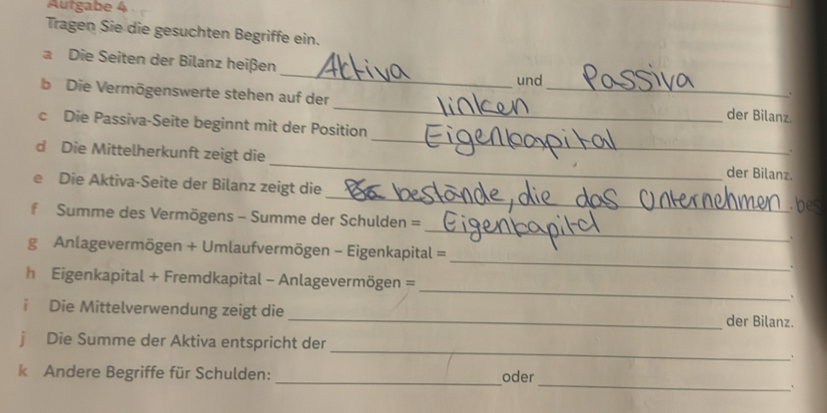 Aufgabe 4
Tragen Sie die gesuchten Begriffe ein.
a Die Seiten der Bilanz heißen Aktiva und Passiva.
b Die Vermögenswerte stehen auf der linken der Bilanz.
c Die Passiva-Seite beginnt mit der Position Eigenkapital.
d Die Mittelherkunft zeigt die der Bilanz.
e Die Aktiva-Seite der Bilanz zeigt die bestände, die das Unternehmen.
f Summe des Vermögens – Summe der Schulden = Eigenkapital.
g Anlagevermögen + Umlaufvermögen – Eigenkapital = .
h Eigenkapital + Fremdkapital – Anlagevermögen = .
i Die Mittelverwendung zeigt die der Bilanz.
j Die Summe der Aktiva entspricht der .
k Andere Begriffe für Schulden: oder .